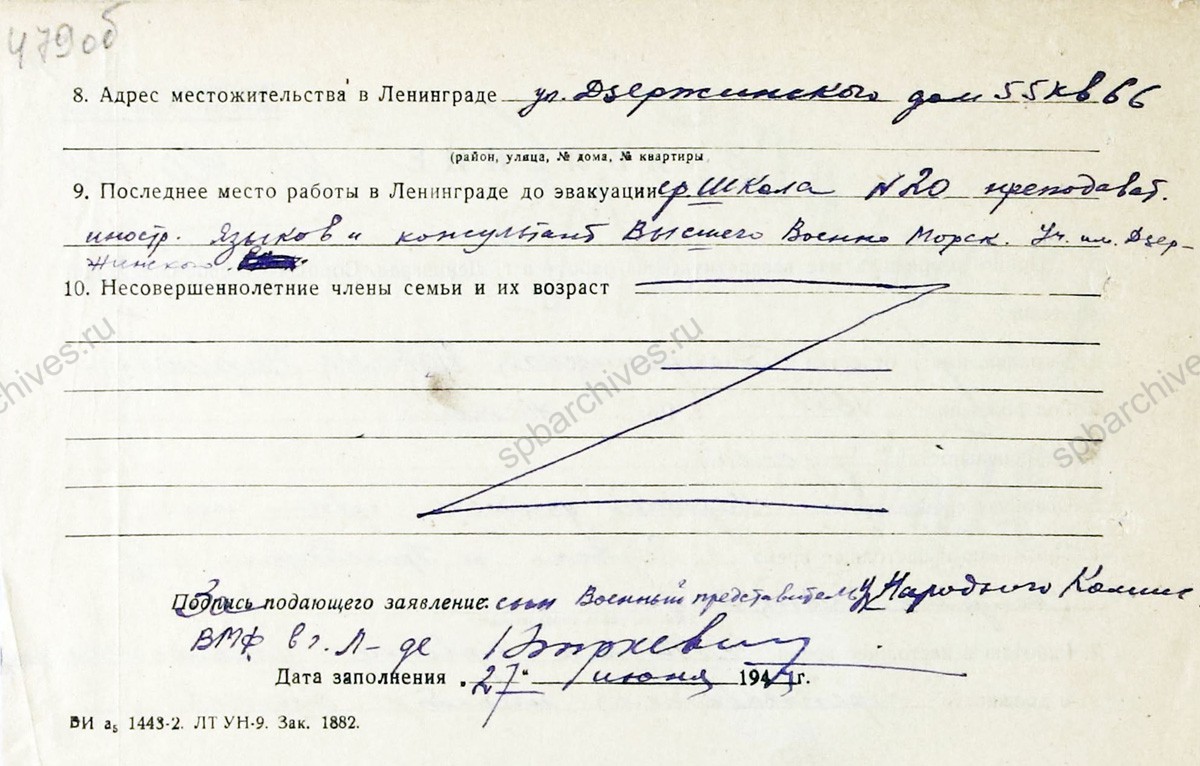 479об
8. Адрес местожительства в Ленинграде ул. Дзержинского дом 55 кв 66
(район, улица, № дома, № квартиры
9. Последнее место работы в Ленинграде до эвакуации ср Школа N 20 преподават.
иностр. Языков и консультант Высшего Военно Морск. Уч. им. Дзер-
жинского.
10. Несовершеннолетние члены семьи и их возраст
spbarchives.ru
spbarchives.ru
spbarchives.ru
За
Подпись подающего заявление: сын Военный представитель Народного Комис
ВМФ в г. Л-де
Дата заполнения „27" июня 1944 г.
ВИ а₅ 1443-2. ЛТ УН-9. Зак. 1882.